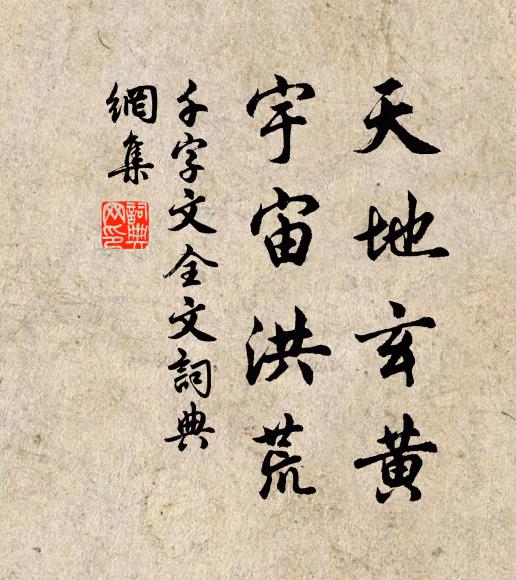 天地玄黄
宇宙洪荒
千字文全文詞典
網集
詞典
网印